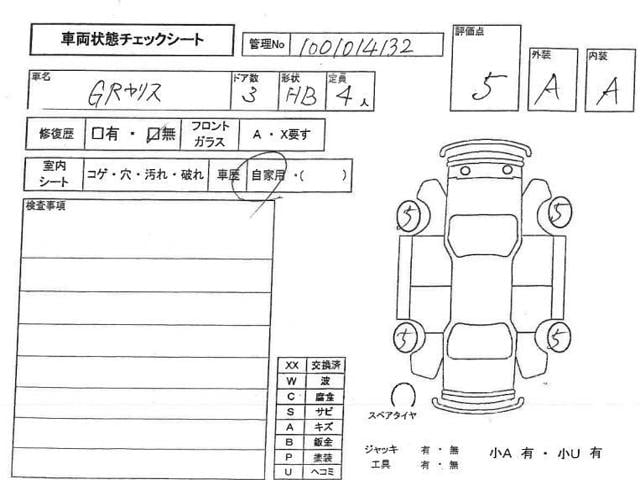 車両状態チェックシート
管理No 1001014132
評価点 5
外装 A
内装 A
車名 GRヤリス
ドア数 3
形状 HB
定員 4人
修復歴 □有・☑無 フロントガラス A・X要す
室内シート コゲ・穴・汚れ・破れ 車歴 自家用・( )
検査事項
5 5
5 5
XX 交換済
W 波
C 腐食
S サビ
A キズ
B 鈑金
P 塗装
U ヘコミ
スペアタイヤ
ジャッキ 有・無
工具 有・無
小A 有・小U 有